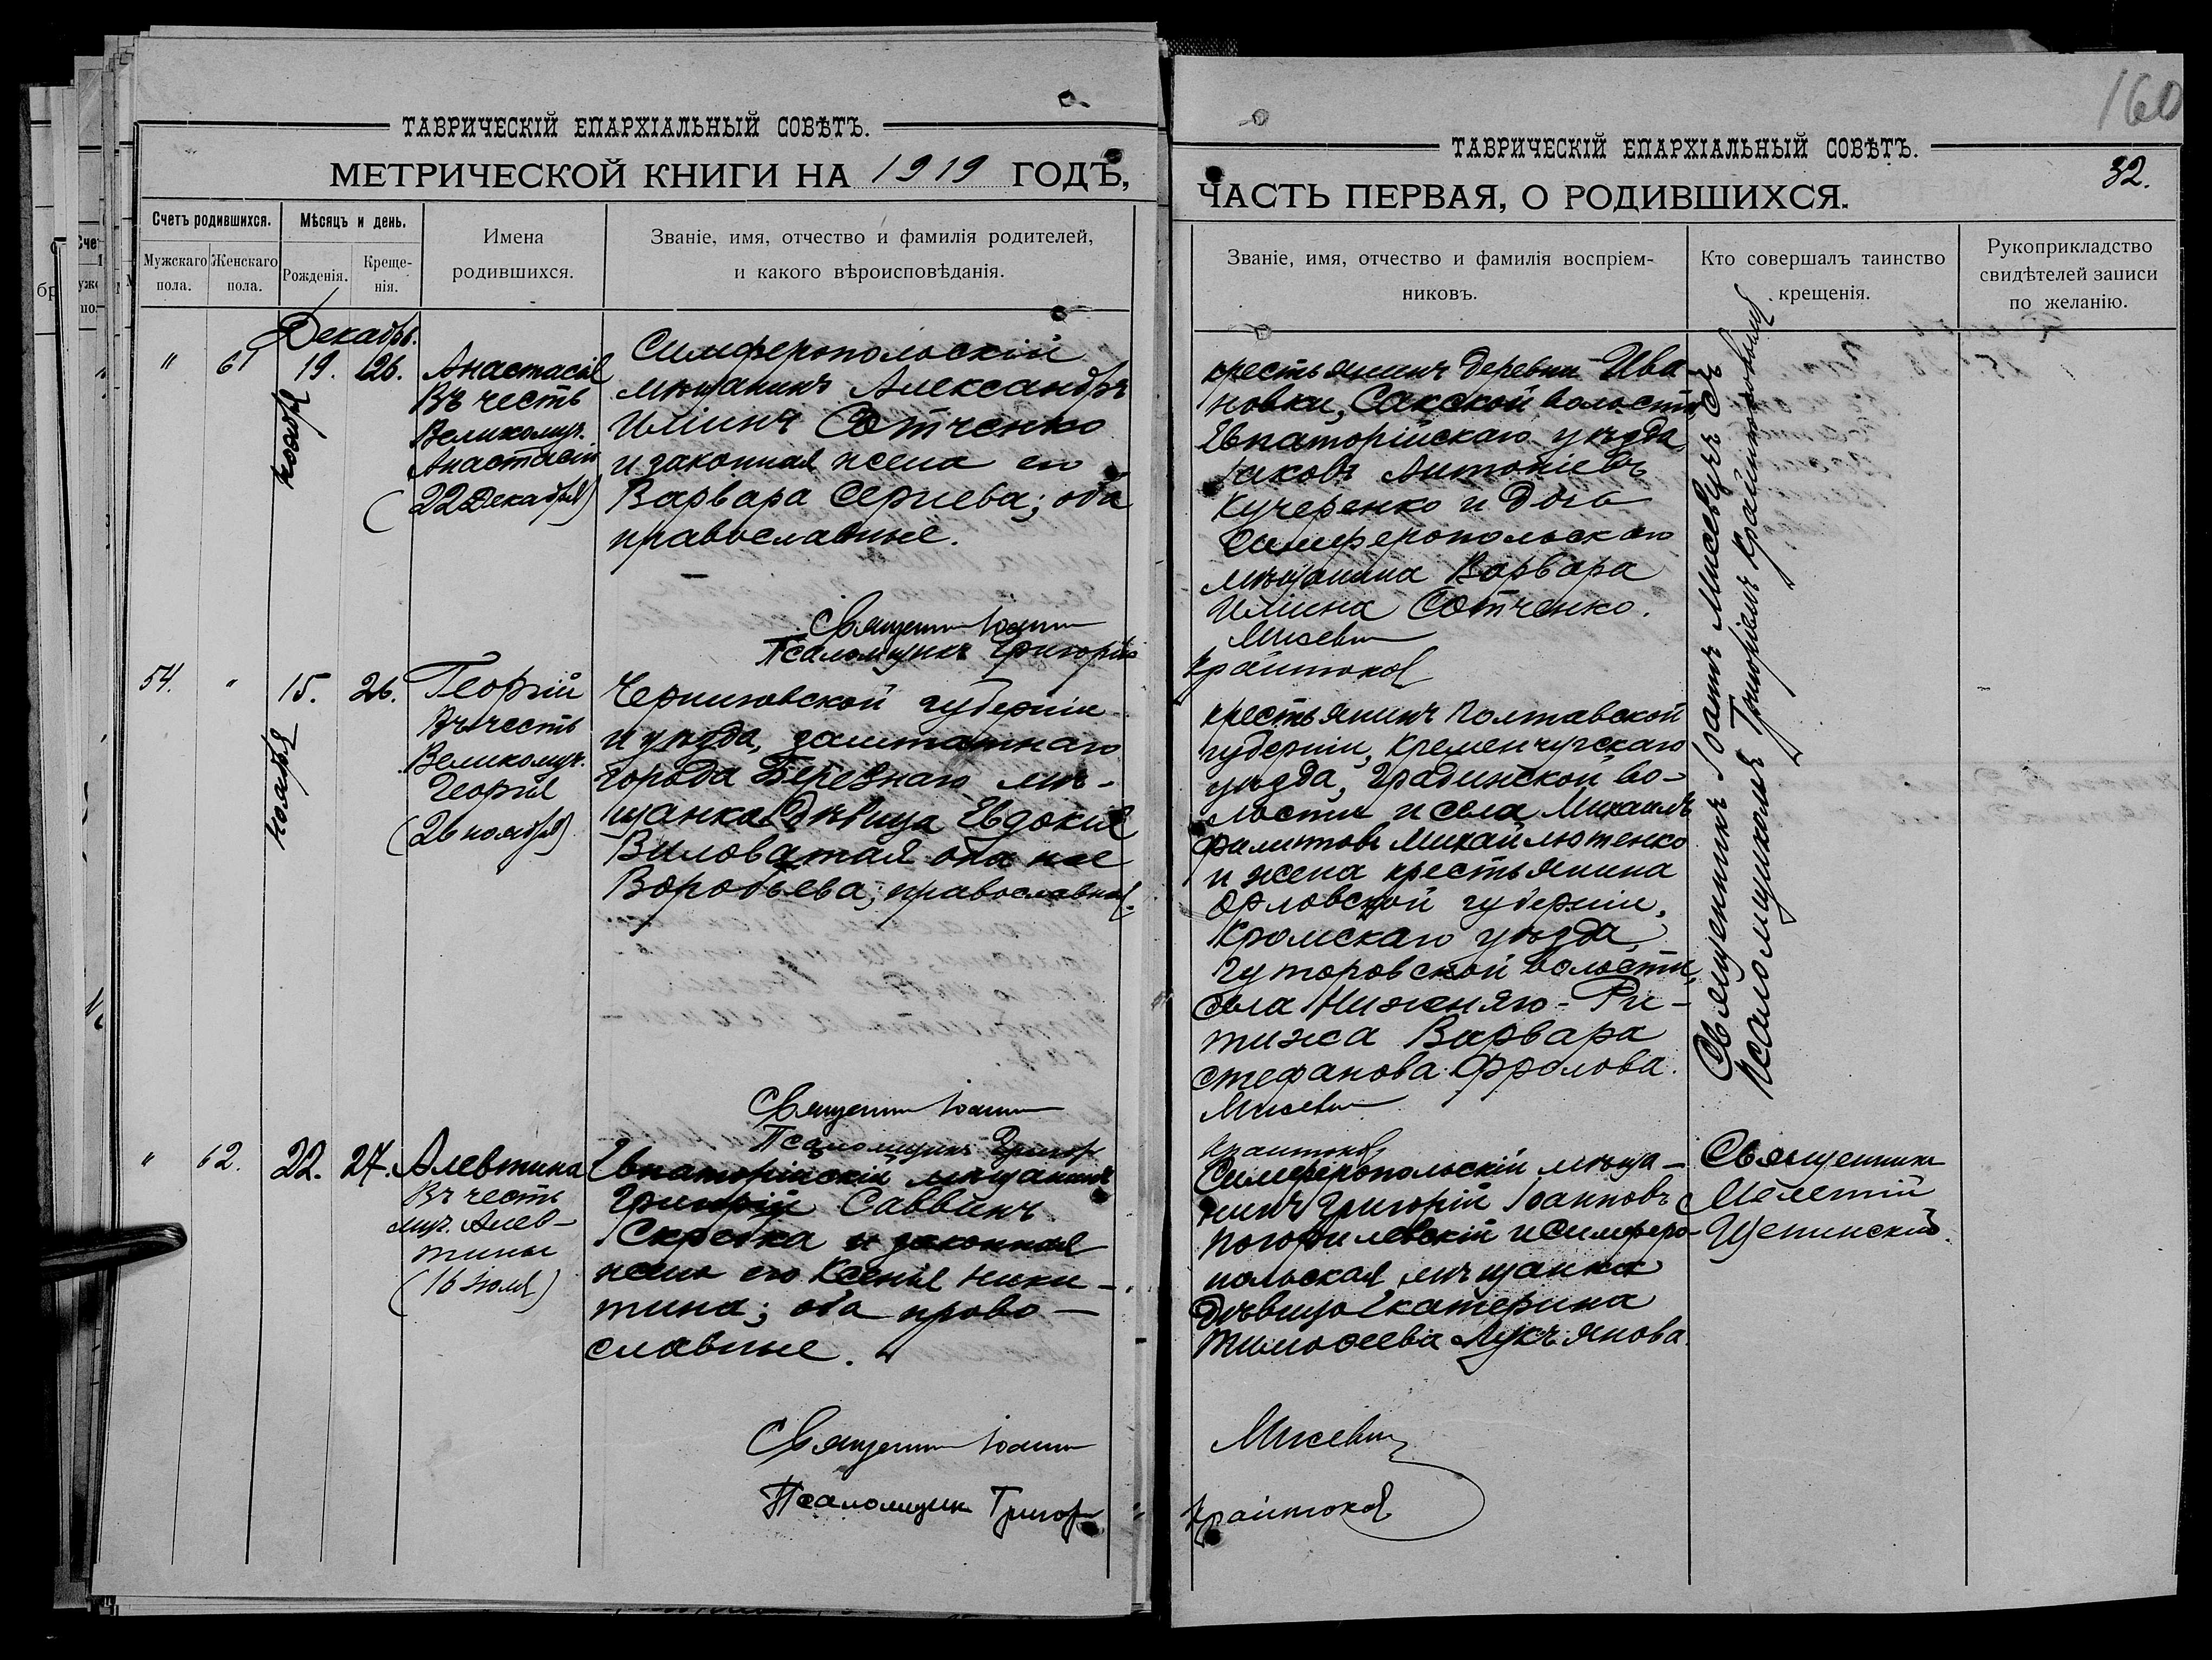 ТАВРИЧЕСКІЙ ЕПАРХІАЛЬНЫЙ СОВѢТЪ.
МЕТРИЧЕСКОЙ КНИГИ НА 1919 ГОДЪ,
Счетъ родившихся.
Мужскаго пола.
Женскаго пола.
Мѣсяцъ и день.
Рожденія.
Креще-
нія.
Имена
родившихся.
Званіе, имя, отчество и фамилія родителей,
и какого вѣроисповѣданія.
Декабр.
" 61 19. 26.
Ноября
Анастасія
Въ честь
Великомуч.
Анастасіи
(22 Декабря)
Симферопольскій
мѣщанинъ Александръ
Иліинъ Сотченко
и законная жена его
Варвара Сергиева; оба
православные.
Священни Іоанн
Псаломщикъ Григорій
54. " 15. 26.
Ноября
Георгій
Въ честь
Великомуч.
Георгія
(26 ноября)
Черниговской губерніи
и уѣзда, заштатнаго
города Березнаго мѣ-
щанка дѣвица Евдокія
Виловатая она же
Воробьева; православная.
Священни Іоанн
Псаломщикъ Григор
" 62. 22. 27.
Алевтина
Въ честь
муч. Алев-
тины
(16 Іюля)
Евпаторійскій мѣщанинъ
Григорій Саввинъ
Скребка и законная
жена его Ксенія Ники-
тина; оба право-
славные.
Священни Іоанн
Псаломщик Григор
160
ТАВРИЧЕСКІЙ ЕПАРХІАЛЬНЫЙ СОВѢТЪ.
32.
ЧАСТЬ ПЕРВАЯ, О РОДИВШИХСЯ.
Званіе, имя, отчество и фамилія воспріем-
никовъ.
Кто совершалъ таинство
крещенія.
Рукоприкладство
свидѣтелей записи
по желанію.
крестьянинъ деревни Ива-
новки, Сакской волости
Евпаторійскаго уѣзда,
Іаковъ Антоніевъ
Кучеренко и дочь
Симферопольскаго
мѣщанина Варвара
Иліина Сотченко.
Мисевич
Крайтоков
крестьянинъ Полтавской
губерніи, Кременчугскаго
уѣзда, Градижской во-
лости и села Михаилъ
Филиповъ Михайлютенко
и жена крестьянина
Орловской губерніи,
Кромскаго уѣзда,
Гуторовской волости,
села Нижняго-Ри-
тижа Варвара
Стефанова Фролова.
Мисевич
Крайтоков
Симферопольскій мѣща-
нинъ Григорій Іоанновъ
и Симферо-
польская мѣщанка
дѣвица Екатерина
Тимофеева Лукъянова.
Мисевич
Крайтоков
Священникъ Іоаннъ Мисевичъ съ
псаломщикомъ Григоріемъ Крайтоковымъ
Священникъ
Мелетій
Щепинскій.